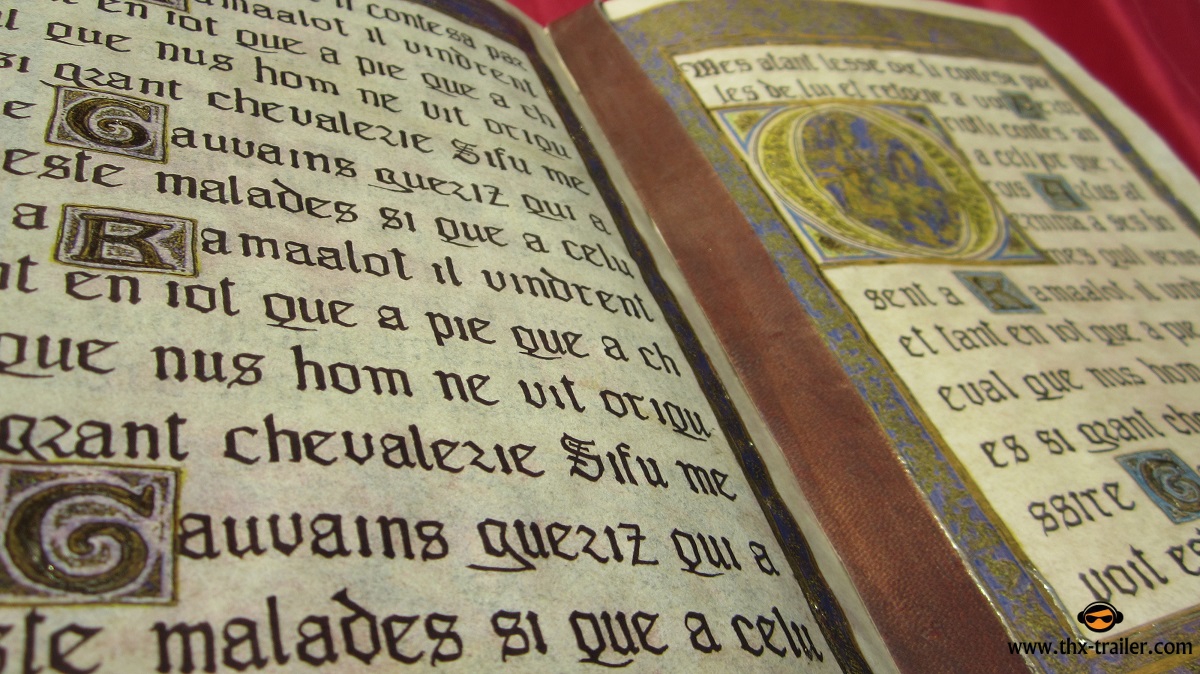 li contesa par
amaalot il vindrent
en iot que a pie que a ch
que nus hom ne vit oriqu
si grant chevalerie Sifu me
Gauvains queriz qui a
este malades si que a celu
a Ramaalot il vindrent
en iot que a pie que a ch
que nus hom ne vit oriqu
grant chevalerie Sifu me
Gauvains queriz qui a
ste malades si que a celu
Mes atant lesse ore li contesa par
les de lui et retorne a
contes
a celi
a ses ho
mes qui
sent a Ramaalot il
et tant en iot que a pie
eval que nus hom
es si grant che
ssire G
voit es
www.thx-trailer.com